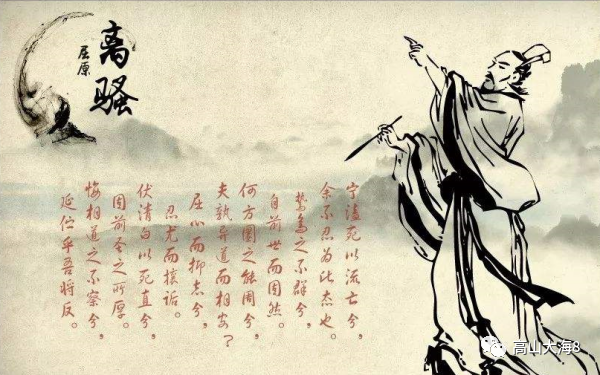 离骚
屈原
宁溘死以流亡兮，
余不忍为此态也。
鸷鸟之不群兮，
自前世而固然。
何方圜之能周兮，
夫孰异道而相安？
屈心而抑志兮，
忍尤而攘诟。
伏清白以死直兮，
固前圣之所厚。
悔相道之不察兮，
延伫乎吾将反。
高山大海8